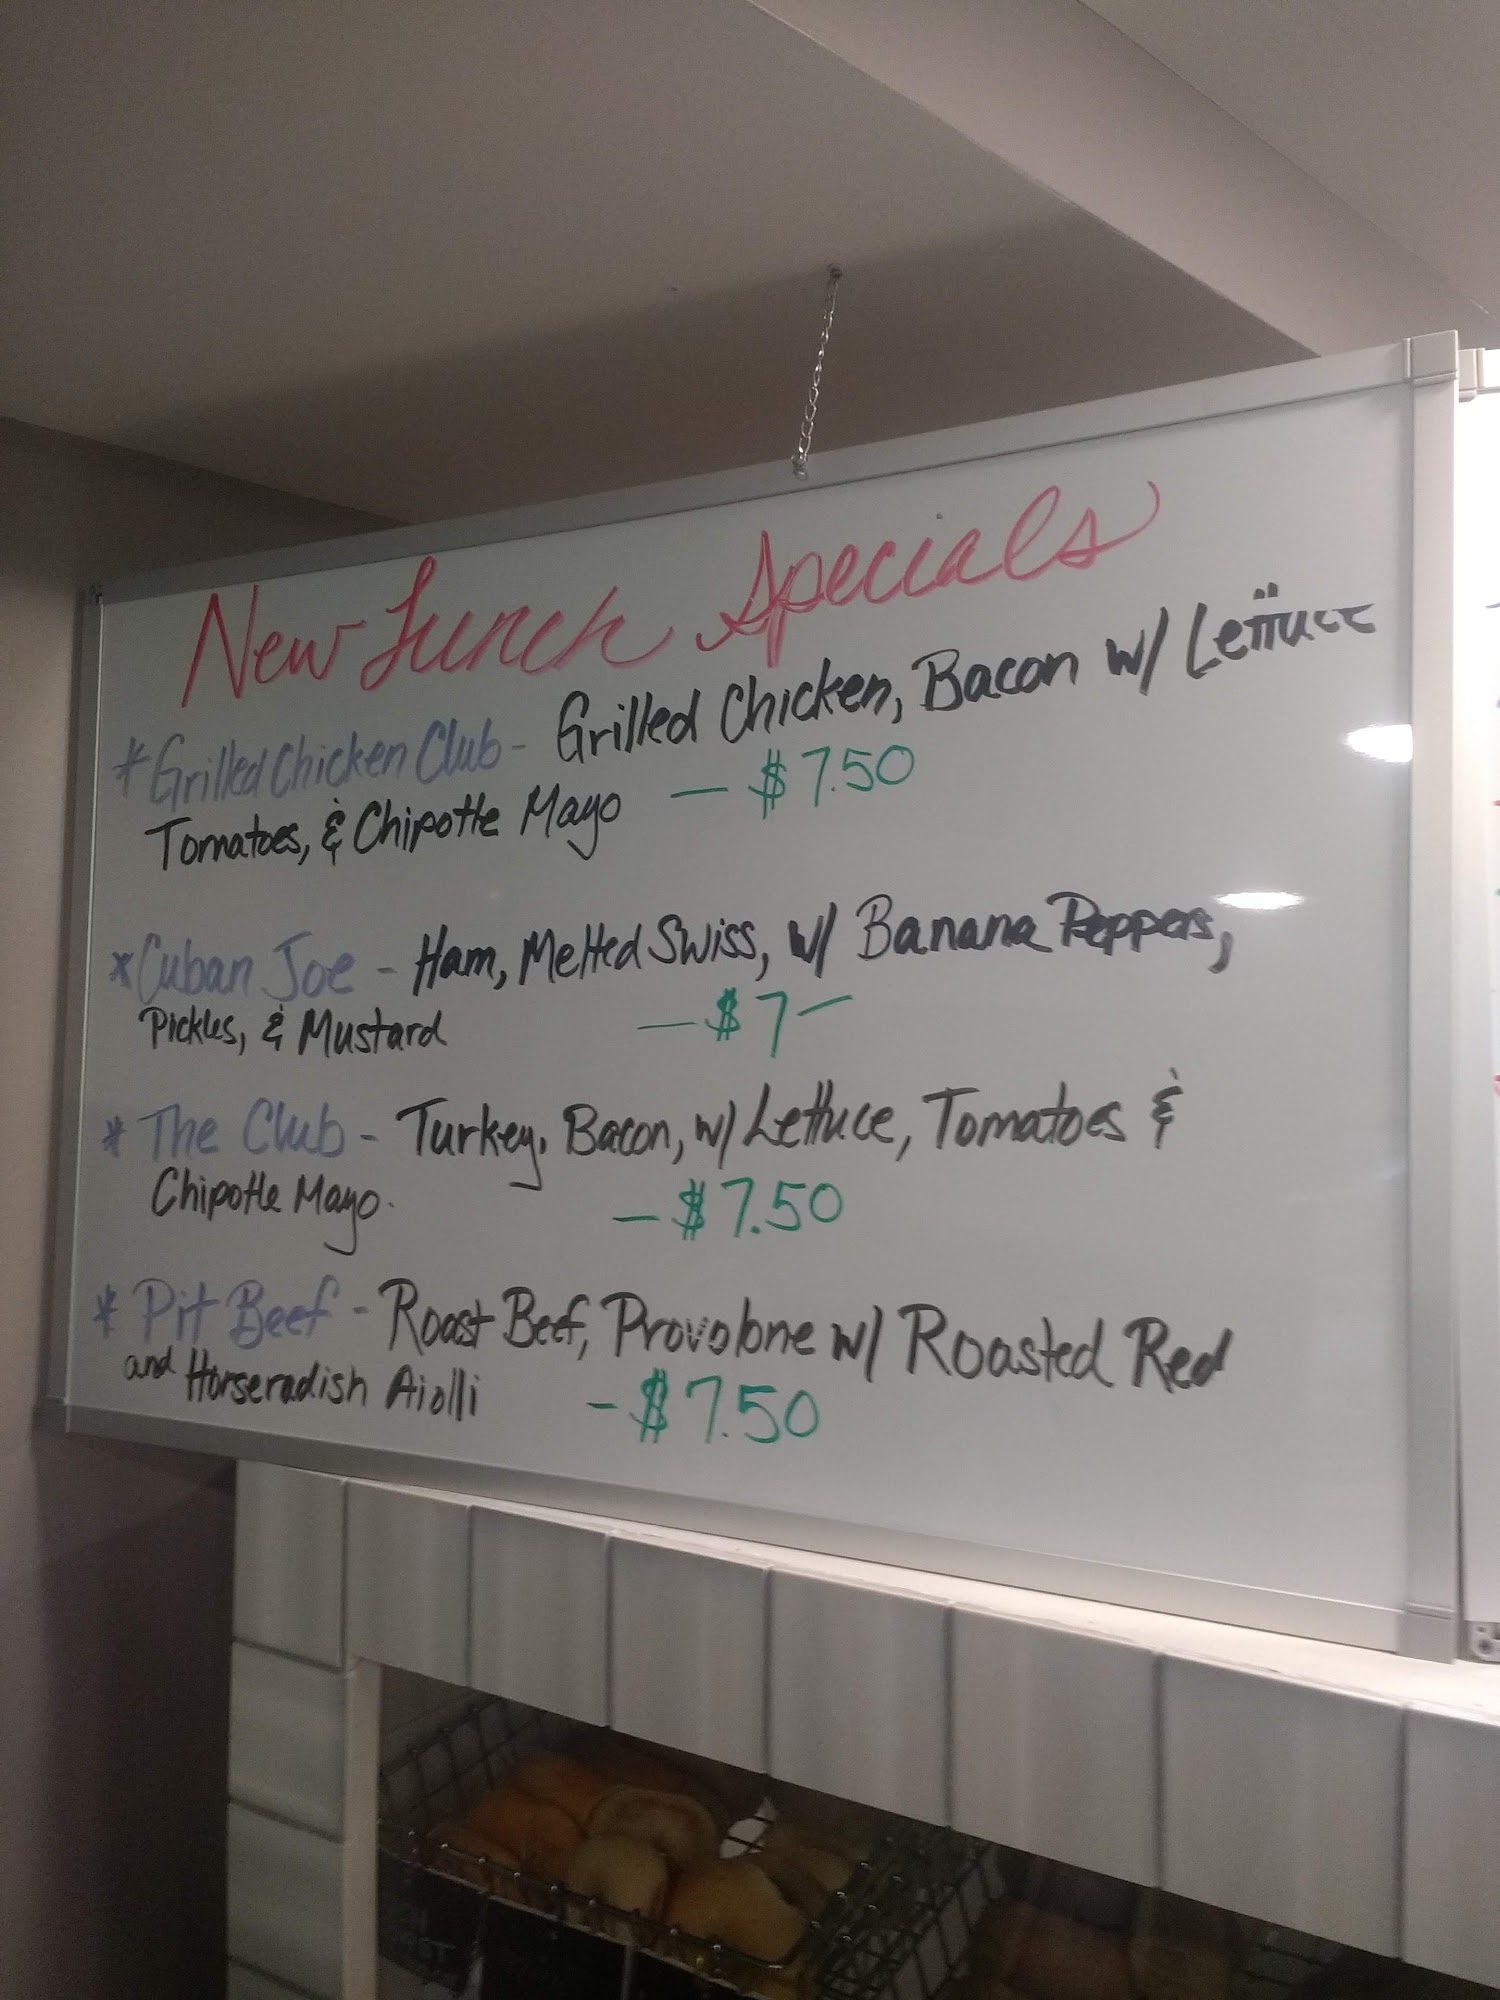 New Lunch Specials
* Grilled Chicken Club - Grilled Chicken, Bacon w/ Lettuce
Tomatoes, & Chipotle Mayo - $7.50
* Cuban Joe - Ham, Melted Swiss, w/ Banana Peppers,
Pickles, & Mustard - $7-
* The Club - Turkey, Bacon, w/ Lettuce, Tomatoes &
Chipotle Mayo. - $7.50
* Pit Beef - Roast Beef, Provolone w/ Roasted Red
and Horseradish Aiolli - $7.50